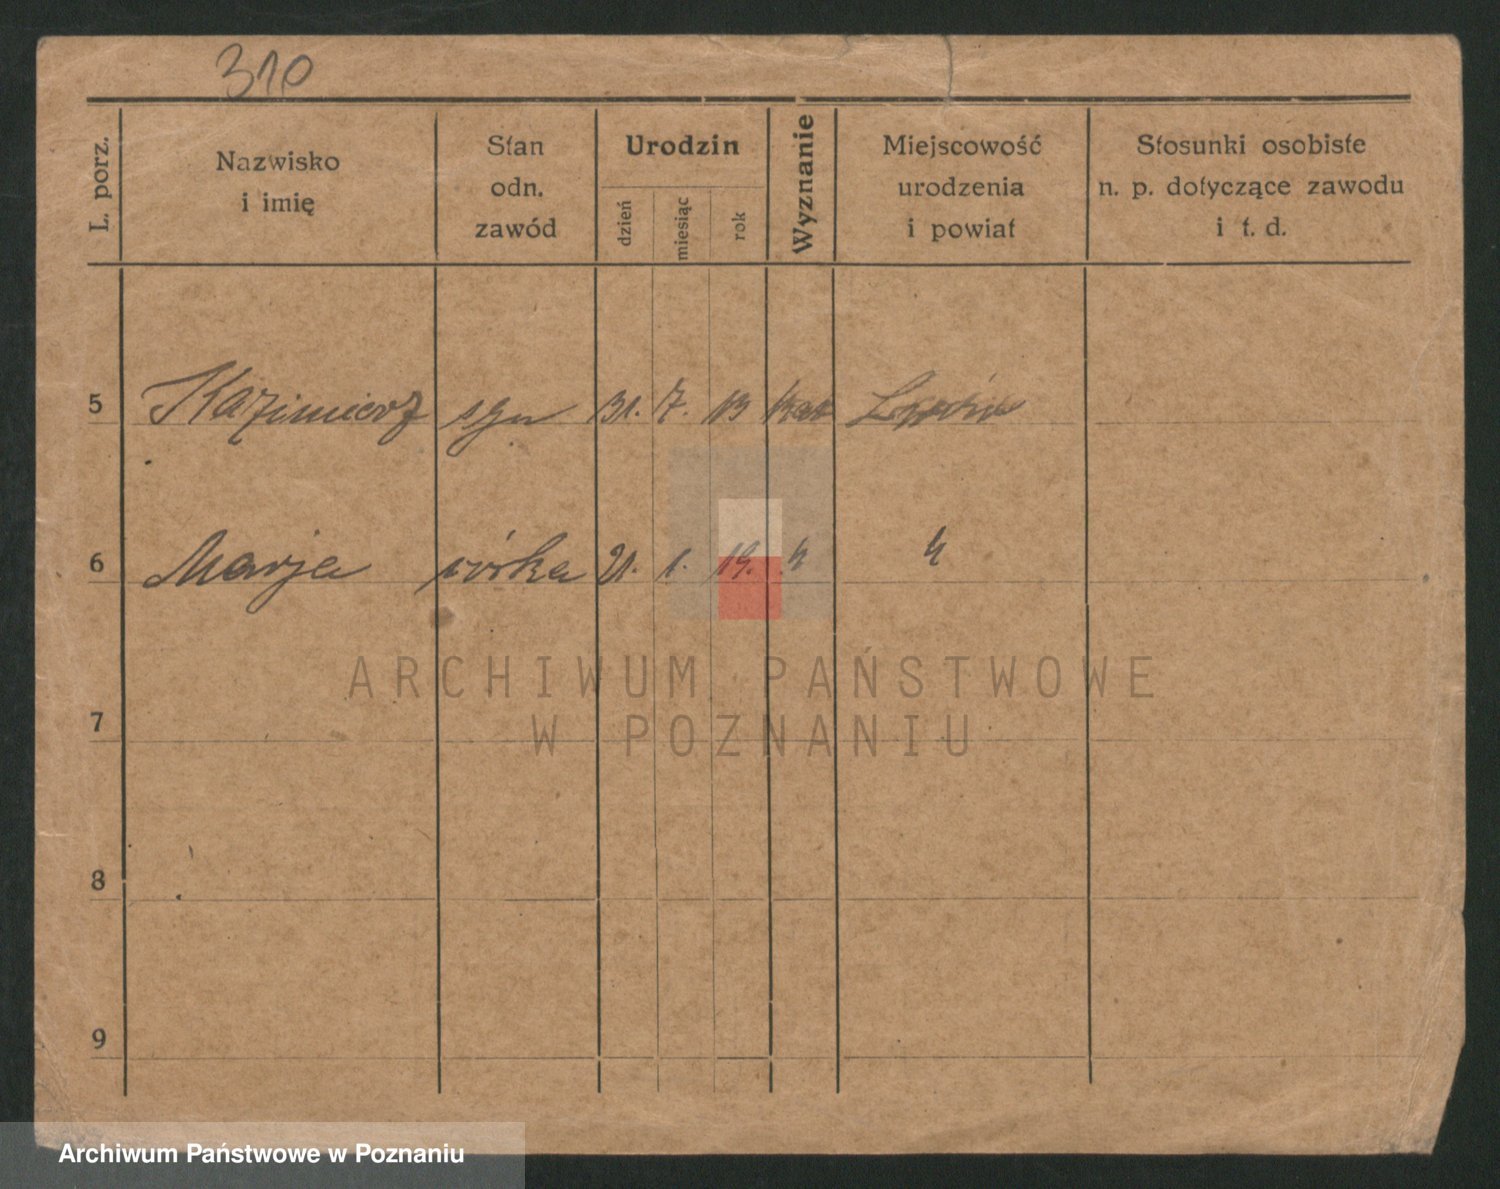 310
L. porz.
Nazwisko
i imię
Stan
odn.
zawód
Urodzin
dzień
miesiąc
rok
Wyznanie
Miejscowość
urodzenia
i powiat
Stosunki osobiste
n. p. dotyczące zawodu
i t. d.
5 Kazimierz syn 31. 7. 13 kat
6 Marja córka 21. 1. 19. "  "
7
8
9
ARCHIWUM PAŃSTWOWE
W POZNANIU
Archiwum Państwowe w Poznaniu